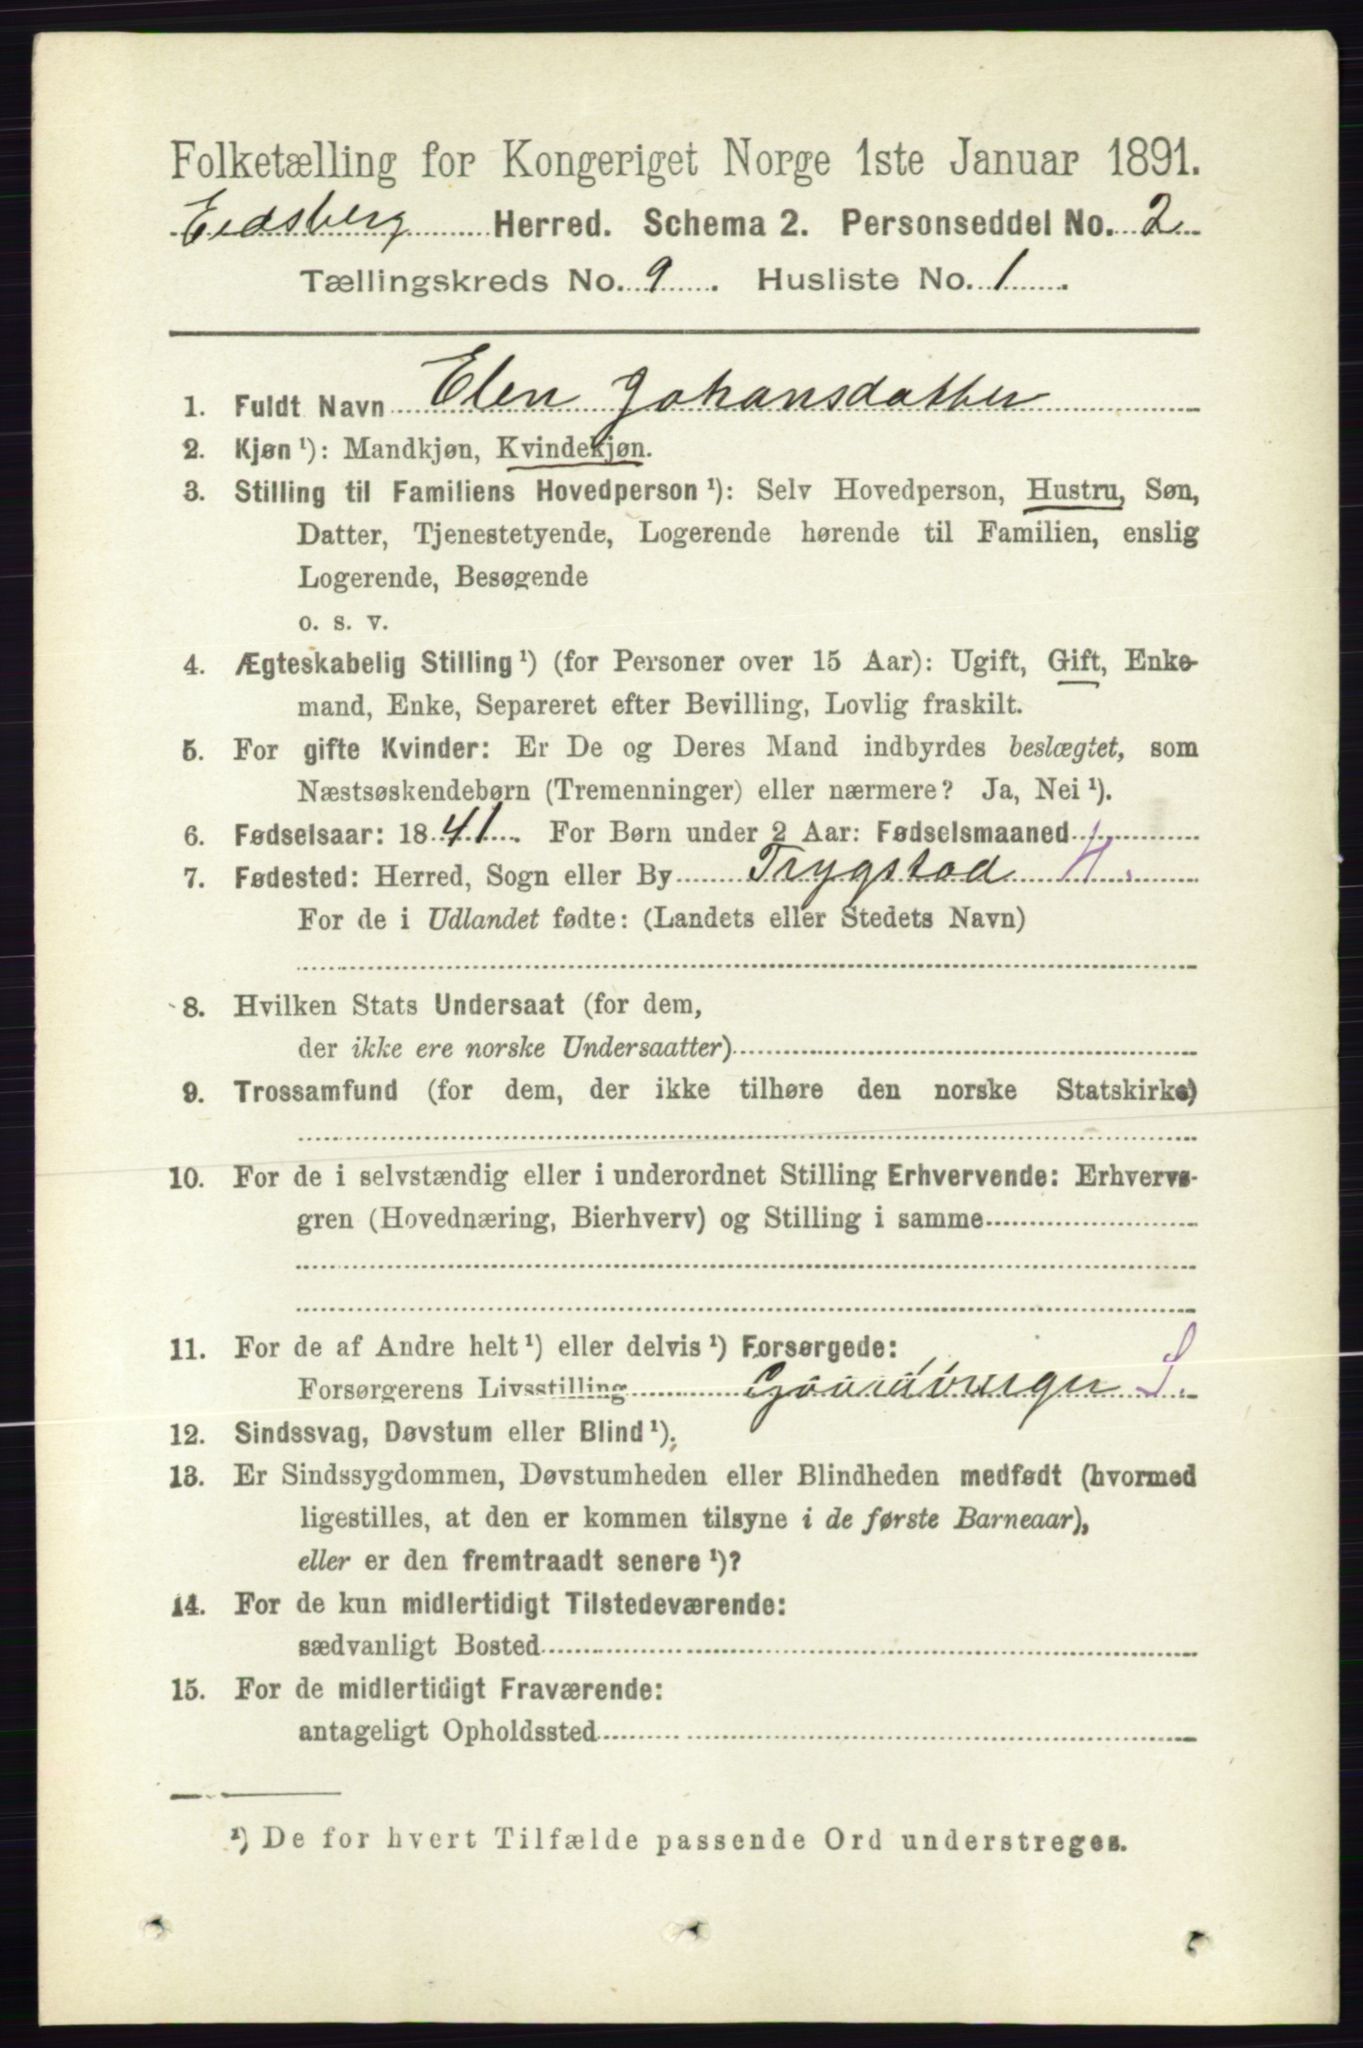 Folketælling for Kongeriget Norge 1ste Januar 1891.
Eidsberg Herred. Schema 2. Personseddel No. 2
Tællingskreds No. 9. Husliste No. 1.
1. Fuldt Navn Elen Johansdatter
2. Kjøn¹): Mandkjøn, Kvindekjøn.
3. Stilling til Familiens Hovedperson¹): Selv Hovedperson, Hustru, Søn,
Datter, Tjenestetyende, Logerende hørende til Familien, enslig
Logerende, Besøgende
o. s. v.
4. Ægteskabelig Stilling¹) (for Personer over 15 Aar): Ugift, Gift, Enke-
mand, Enke, Separeret efter Bevilling, Lovlig fraskilt.
5. For gifte Kvinder: Er De og Deres Mand indbyrdes beslægtet, som
Næstsøskendebørn (Tremenninger) eller nærmere? Ja, Nei¹).
6. Fødselsaar: 1841. For Børn under 2 Aar: Fødselsmaaned
7. Fødested: Herred, Sogn eller By Trygstad H.
For de i Udlandet fødte: (Landets eller Stedets Navn)
8. Hvilken Stats Undersaat (for dem,
der ikke ere norske Undersaatter)
9. Trossamfund (for dem, der ikke tilhøre den norske Statskirke)
10. For de i selvstændig eller i underordnet Stilling Erhvervende: Erhvervs-
gren (Hovednæring, Bierhverv) og Stilling i samme
11. For de af Andre helt¹) eller delvis¹) Forsørgede:
Forsørgerens Livsstilling Gaardbruger S.
12. Sindssvag, Døvstum eller Blind¹).
13. Er Sindssygdommen, Døvstumheden eller Blindheden medfødt (hvormed
ligestilles, at den er kommen tilsyne i de første Barneaar),
eller er den fremtraadt senere¹)?
14. For de kun midlertidigt Tilstedeværende:
sædvanligt Bosted
15. For de midlertidigt Fraværende:
antageligt Opholdssted
¹) De for hvert Tilfælde passende Ord understreges.